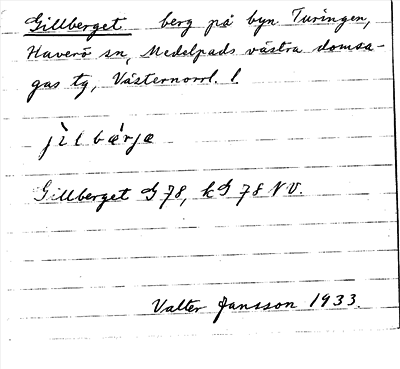 Gillberget berg på byn Turingen,
Haverö sn, Medelpads västra domsa-
gas tg, Västernorrl. l.
jìlbæ̀rjæ
Gillberget G 78, kG 78 NV.
Valter Jansson 1933.